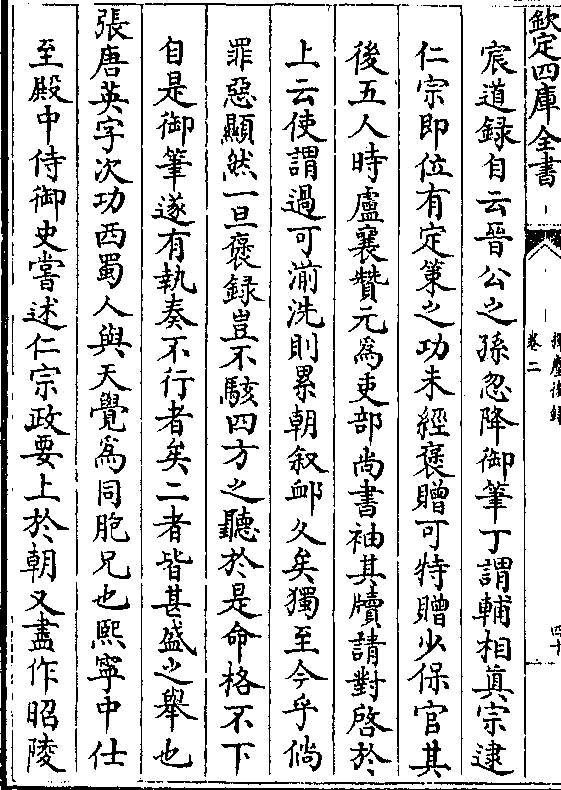 欽定四庫全書
揮麈後録
卷二
四十
宸道録自云晉公之孫忽降御筆丁謂輔相真宗逮
仁宗即位有定策之功未經褒贈可特贈少保官其
後五人時盧襄贊元為吏部尚書袖其牘請對啓於
上云使謂過可湔洗則累朝叙卹久矣獨至今乎倘
罪惡顯然一旦褒録豈不駭四方之聽於是命格不下
自是御筆遂有執奏不行者矣二者皆甚盛之舉也
張唐英字次功西蜀人與天覺為同胞兄也熙寧中仕
至殿中侍御史嘗述仁宗政要上於朝又盡作昭陵